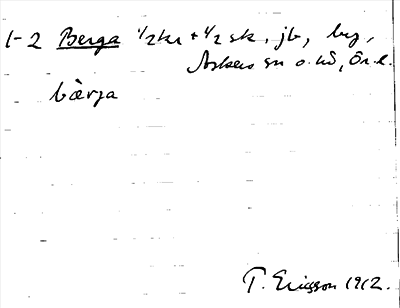 1-2 Berga 1/2 kr + 1/2 sk, jb, by,
Askers sn o. hd, Ör. l.
bærja
T. Ericsson 1912.